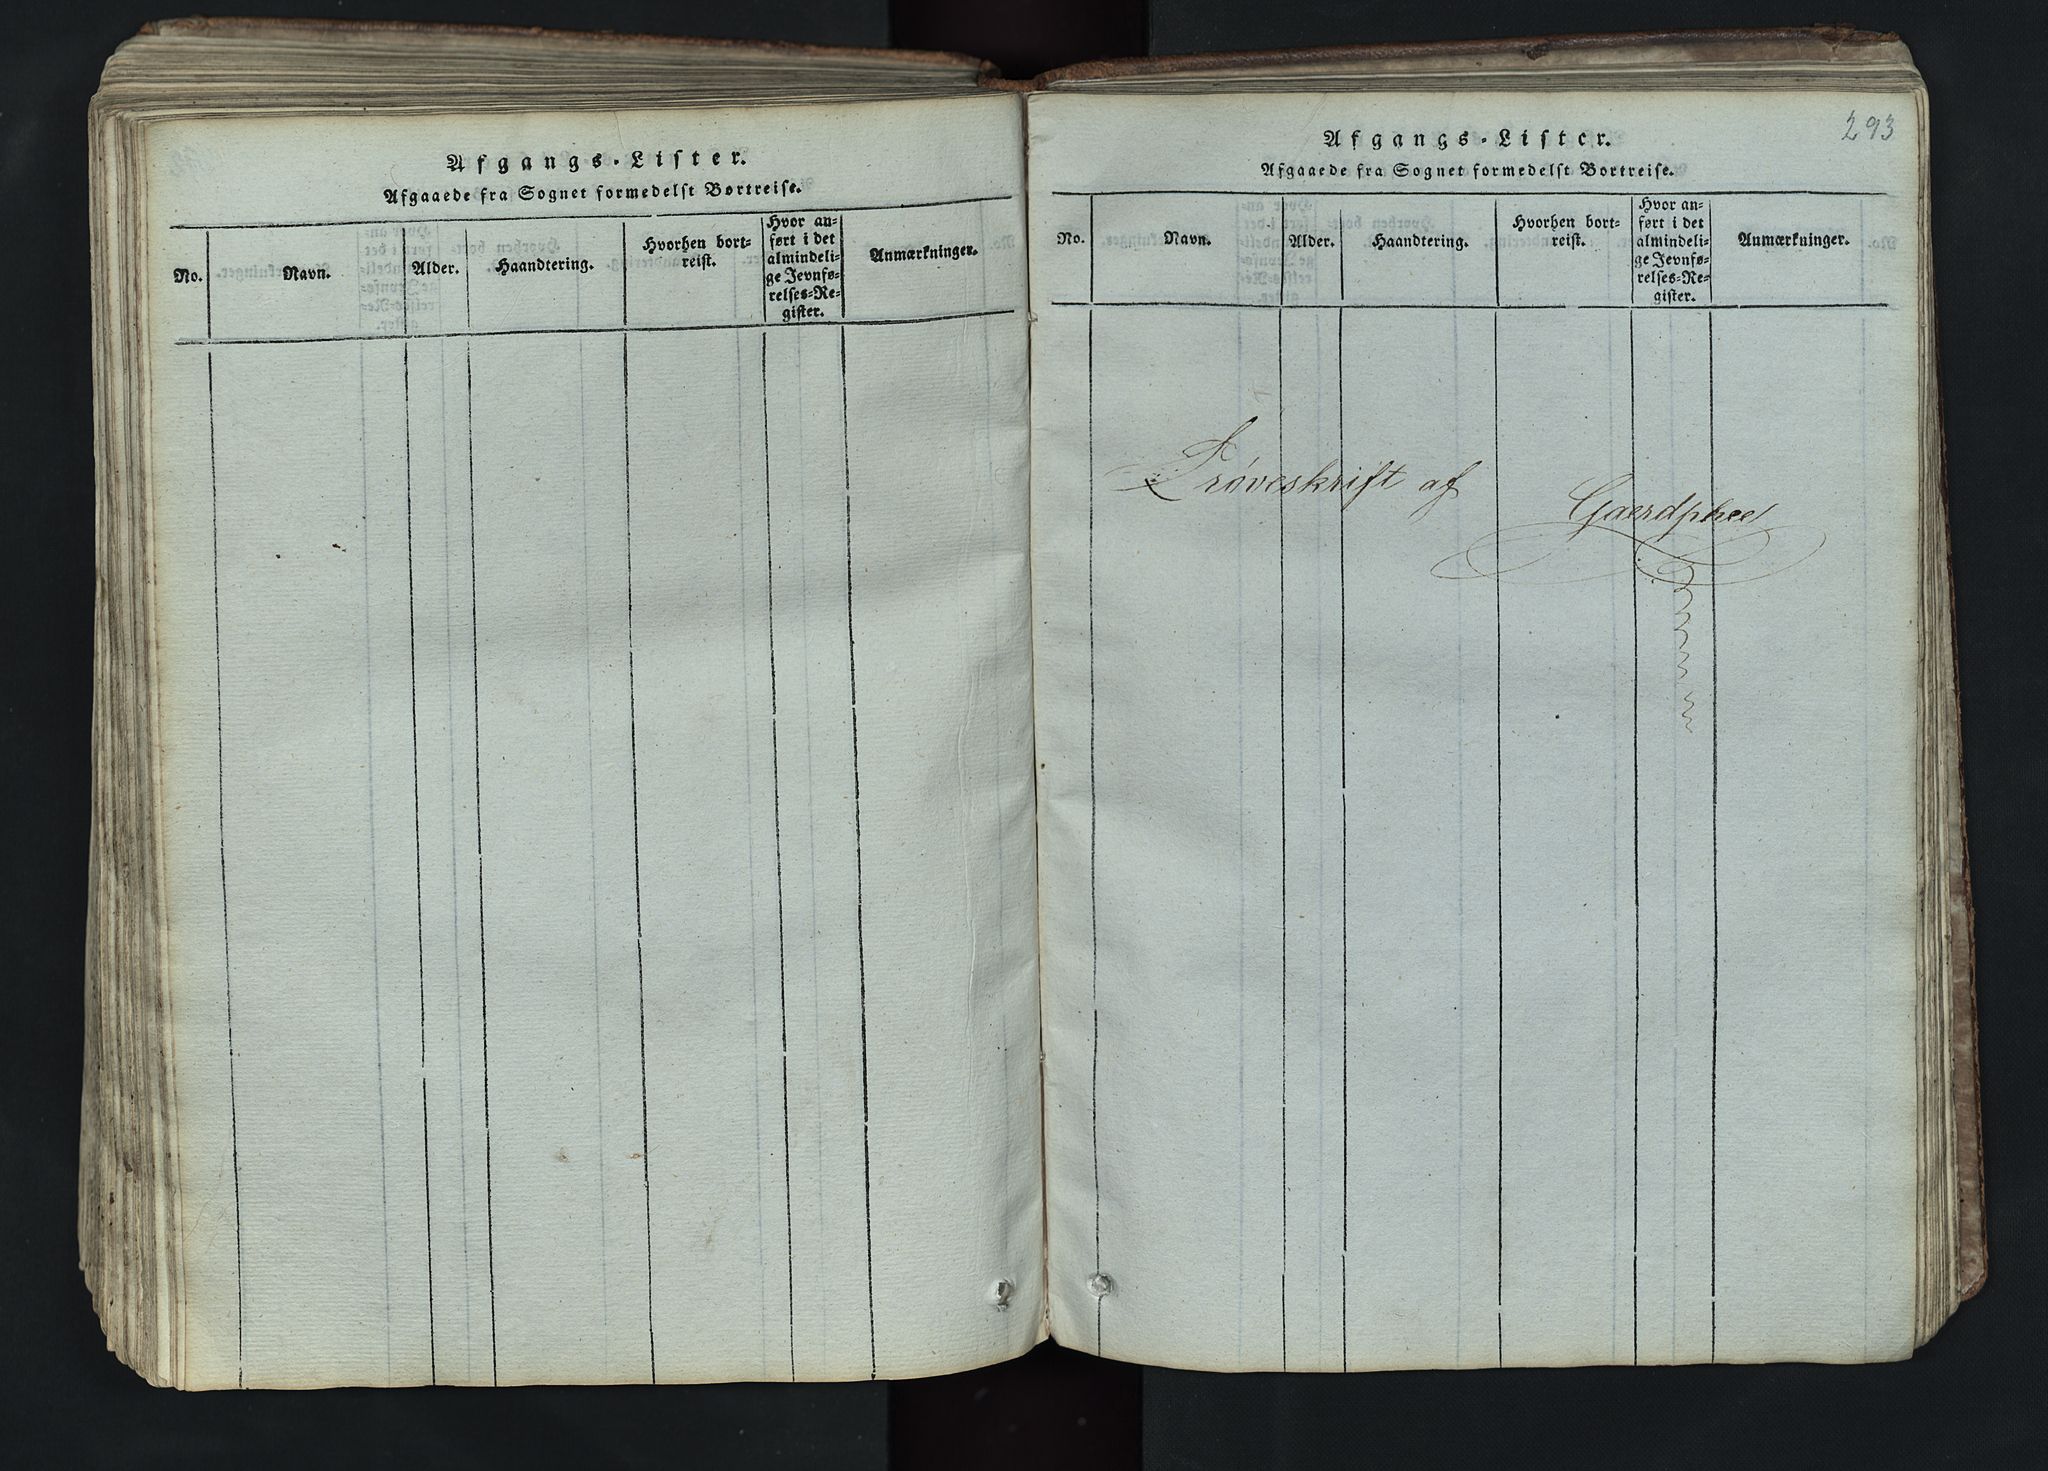 Afgangs-Lister.
Afgaaede fra Sognet formedelst Bortreise.
No.
Navn.
Alder.
Haandtering.
Hvorhen bort-
reist.
Hvor an-
ført i det
almindeli-
ge Jevnfø-
relses-Re-
gister.
Anmærkninger.
293
Afgangs-Lister.
Afgaaede fra Sognet formedelst Bortreise.
No.
Navn.
Alder.
Haandtering.
Hvorhen bort-
reist.
Hvor an-
ført i det
almindeli-
ge Jevnfø-
relses-Re-
gister.
Anmærkninger.
Prøveskrift af